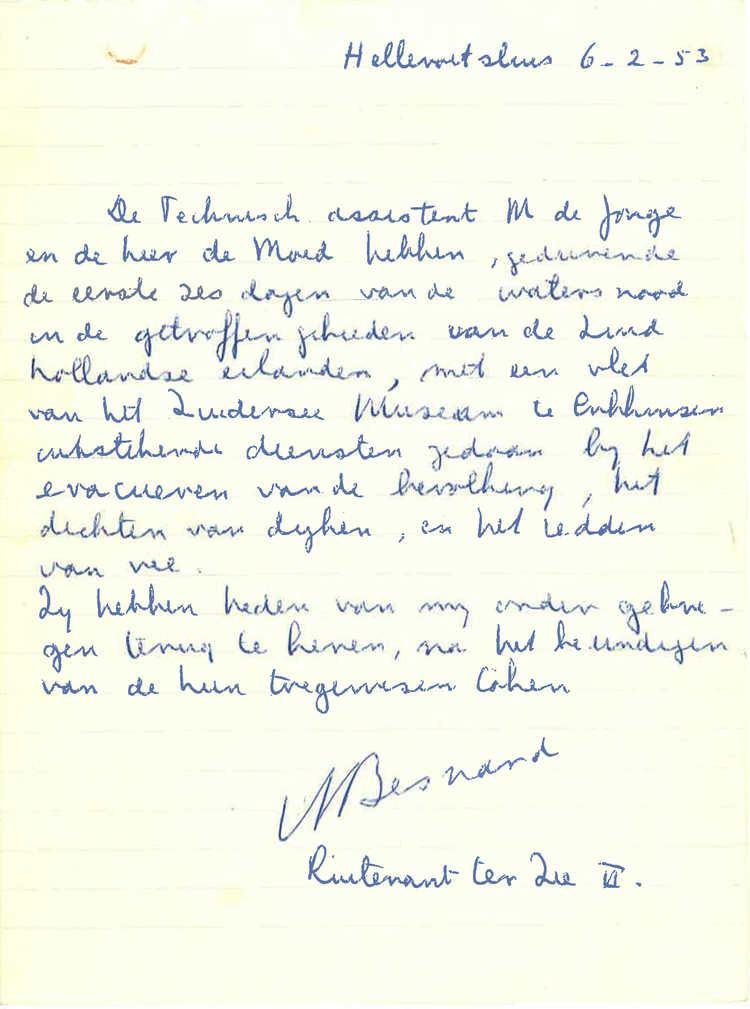 Hellevoetsluis 6-2-53
De Technisch assistent M de Jonge
en de heer de Moed hebben, gedurende
de eerste zes dagen van de watersnood
in de getroffen gebieden van de Zuid
hollandse eilanden, met een vlet
van het Zuiderzee Museum te Enkhuizen
uitstekende diensten gedaan bij het
evacueren van de bevolking, het
dichten van dijken, en het redden
van vee.
Zij hebben heden van mij order gekre-
gen terug te keren, na het beeindigen
van de hun toegewezen taken
Besnard
Luitenant ter Zee